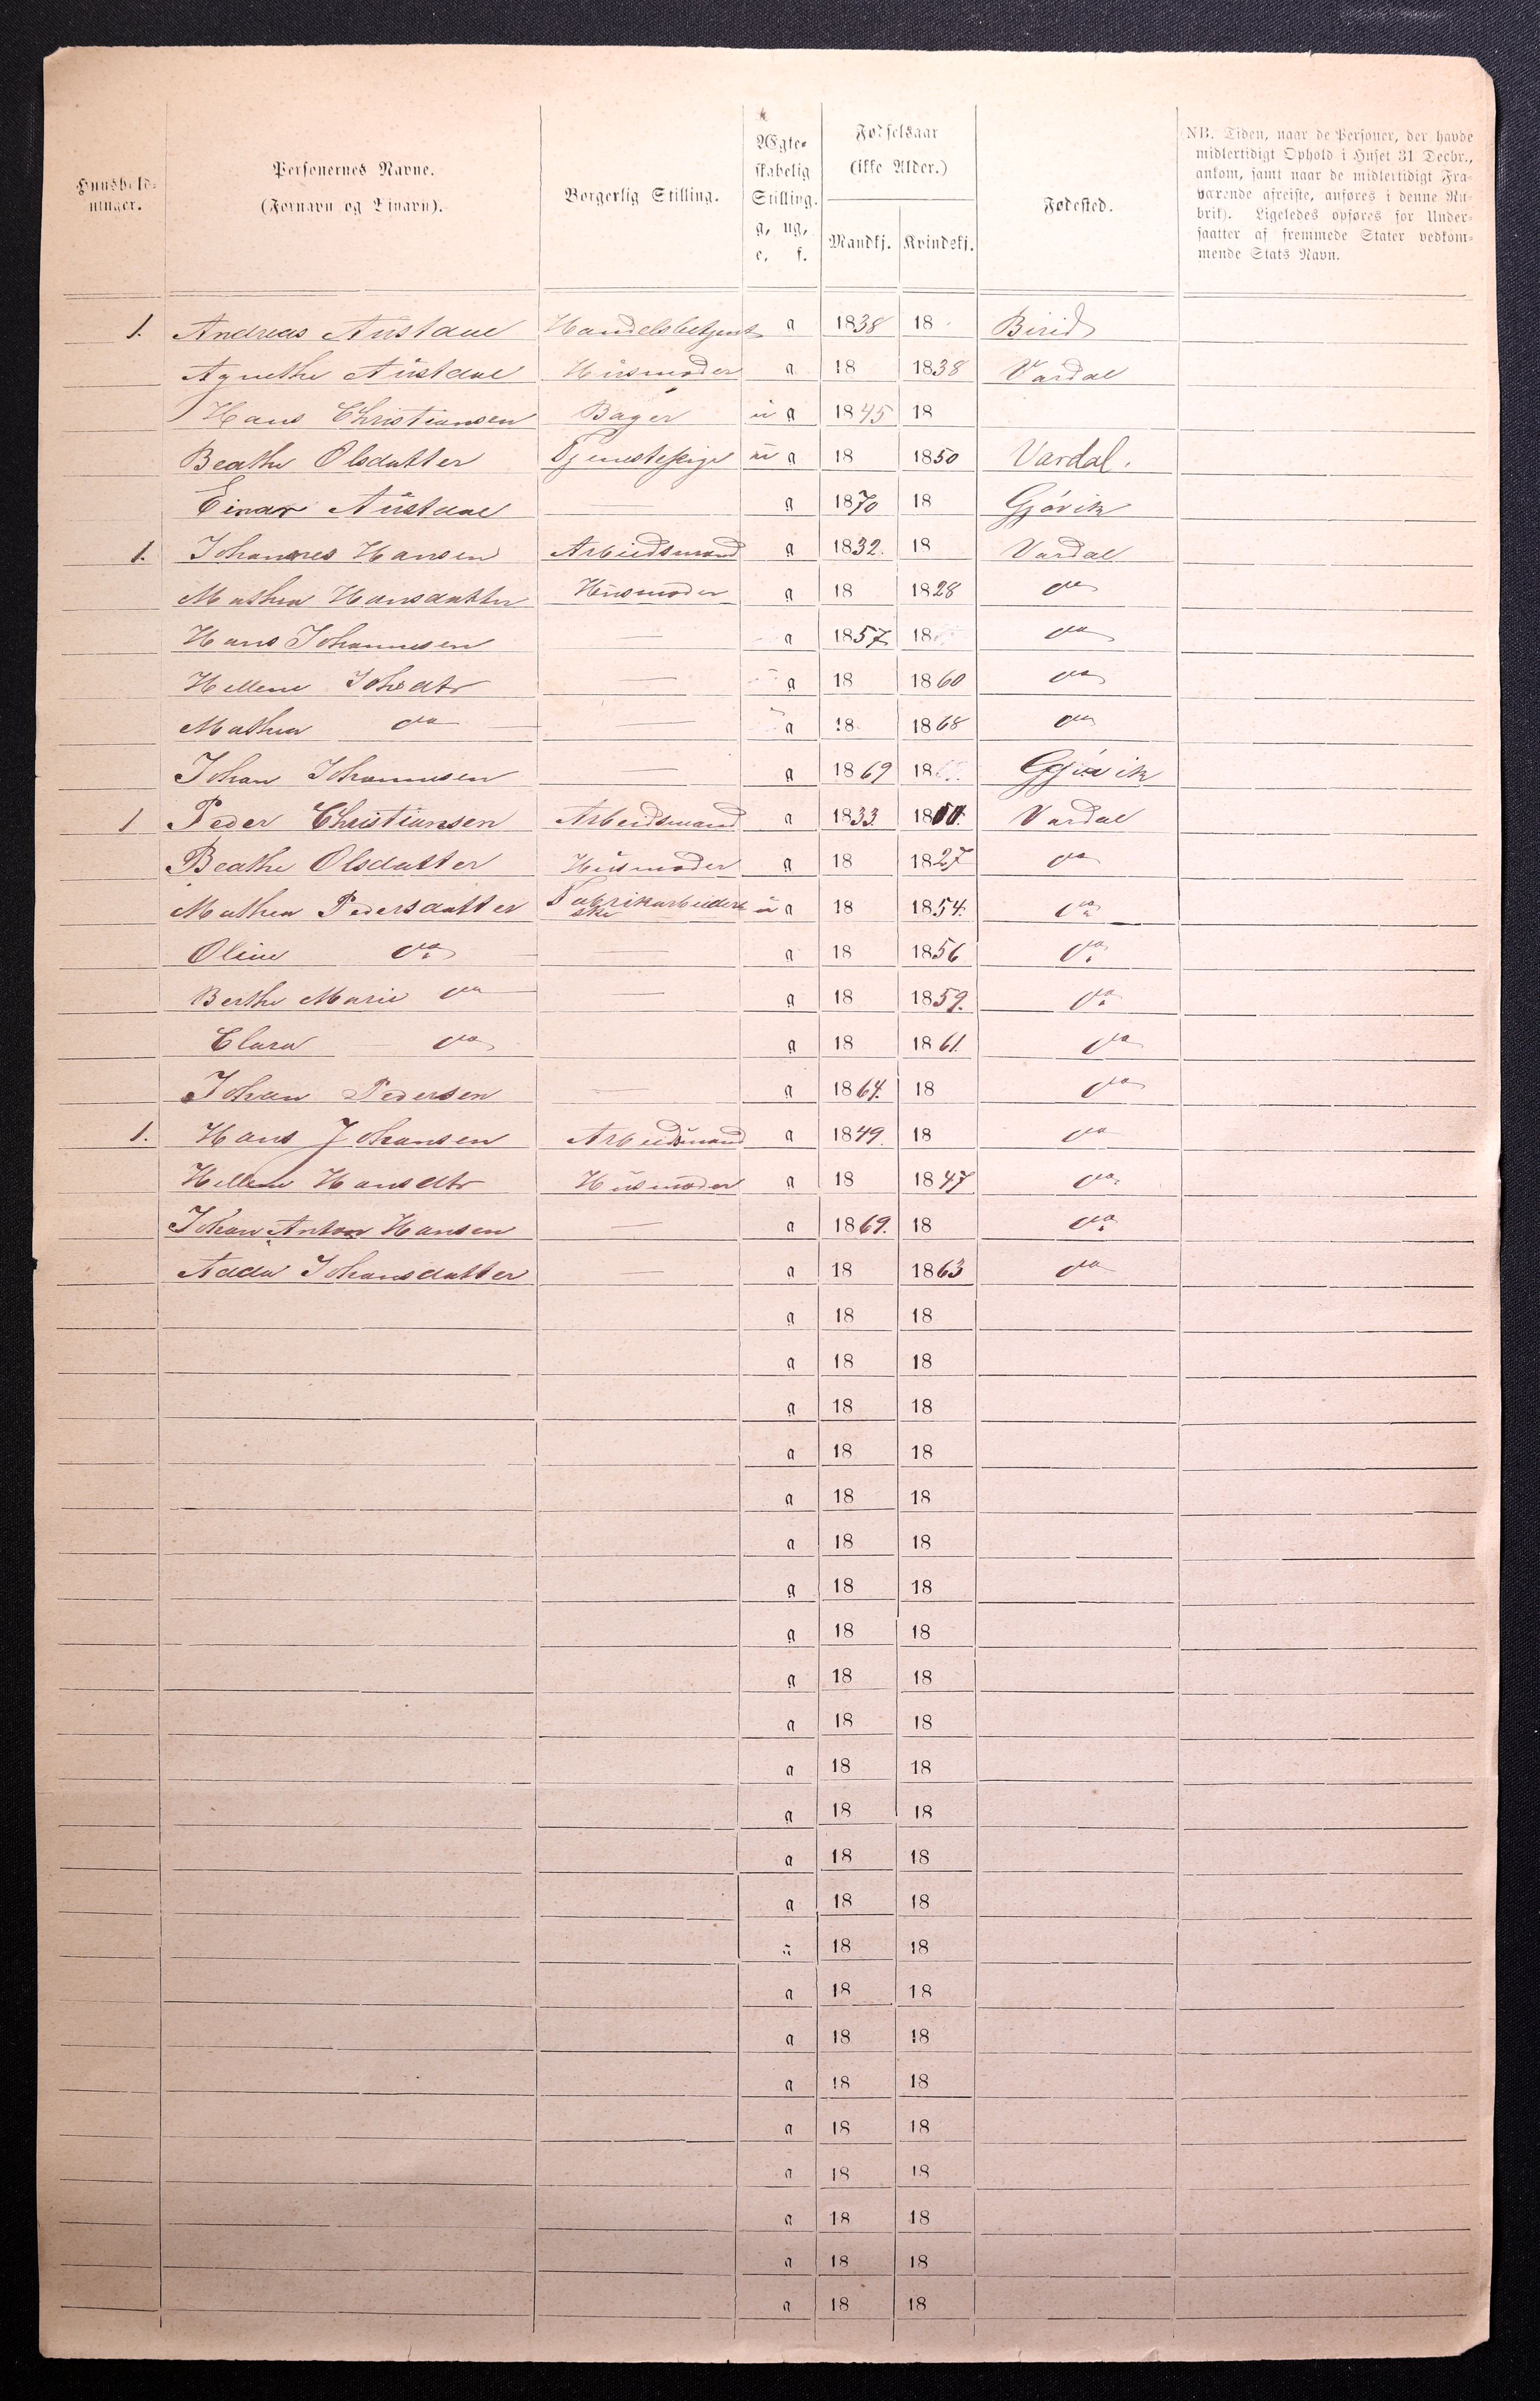 Huushold-
ninger.
Personernes Navne.
(Fornavn og Tilnavn).
Borgerlig Stilling.
Ægte-
skabelig
Stilling.
g, ug,
e, f.
Fødselsaar
(ikke Alder.)
Mandkj. Kvindekj.
Fødested.
NB. Tiden, naar de Personer, der havde
midlertidigt Ophold i Huset 31 Decbr.,
ankom, samt naar de midlertidigt Fra-
værende afreiste, anføres i denne Ru-
brik). Ligeledes opføres for Under-
saatter af fremmede Stater vedkom-
mende Stats Navn.
1. Andreas Austdal Handelsbetjent g 1838 18 Birid
Agnethe Austdal Húsmoder g 18 1838 Vardal
Hans Christiansen Bager ú g 1845 18
Beathe Olsdatter Tjenestepige ú g 18 1850 Vardal.
Einar Austdal — g 1870 18 Gjövik
1. Johannes Hansen Arbeidsmand g 1832. 18 Vardal
Mathea Hansdatter Húsmoder g 18 1828 do
Hans Johannesen — g 1857 18 do
Hellene Johsdtr — g 18 1860 do
Mathea do — g 18 1868 do
Johan Johannesen — g 1869 18 Gjövik
1 Peder Christiansen Arbeidsmand g 1833. 18 Vardal
Beathe Olsdatter Húsmoder g 18 1827 do
Mathea Pedersdatter Fabrikarbeider
ske ú g 18 1854. do
Oline do — g 18 1856 do
Berthe Marie do — g 18 1859. do
Clara do g 18 1861. do
Johan Pedersen — g 1864. 18 do
1. Hans Johansen Arbeidsmand g 1849. 18 do
Hellene Hansdtr Húsmoder g 18 1847 do
Johan Anton Hansen — g 1869. 18 do
Adda Johansdatter — g 18 1863 do
g 18 18
g 18 18
g 18 18
g 18 18
g 18 18
g 18 18
g 18 18
g 18 18
g 18 18
g 18 18
g 18 18
g 18 18
g 18 18
g 18 18
g 18 18
g 18 18
g 18 18
g 18 18
g 18 18
g 18 18
g 18 18
g 18 18
g 18 18